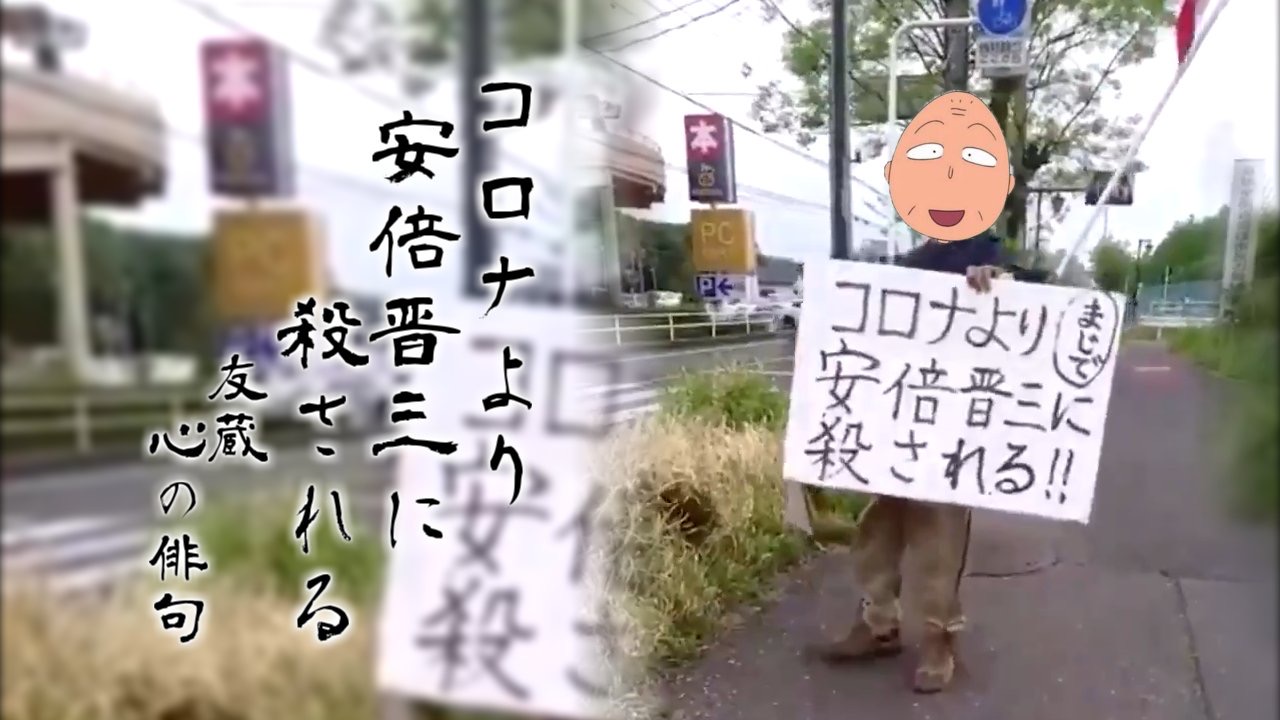 コロナより
安倍晋三に
殺される
友蔵
心の俳句
本
PC
P←
コロナより
まじで
安倍晋三に
殺される!!